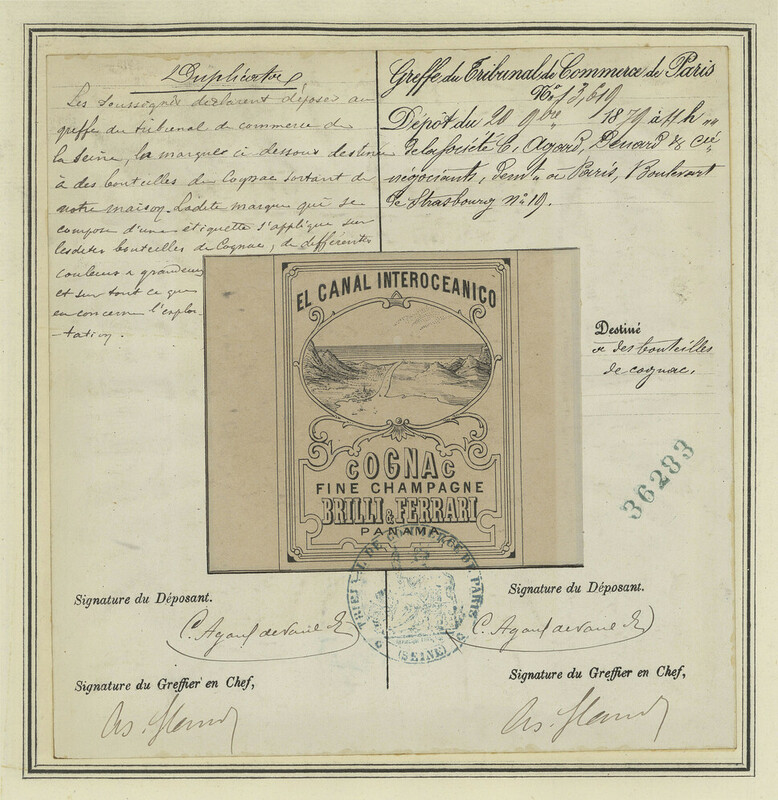 Duplicata
Les soussignés déclarent déposer au
greffe du tribunal de commerce de
la Seine, la marque ci dessous destinée
à des bouteilles de Cognac sortant de
notre maison. Ladite marque qui se
compose d'une étiquette s'applique sur
lesdites bouteilles de Cognac, de différentes
couleurs & grandeurs
et sur tout ce qui
en concerne l'exploi-
-tation.
Greffe du Tribunal de Commerce de Paris
No. 13,619
Dépôt du 20 9bre 1879 à 11 h
de la société C. Agard, & Cie
négociants, demt. à Paris, Boulevart
de Strasbourg no. 19.
EL CANAL INTEROCEANICO
COGNAC
FINE CHAMPAGNE
BRILLI & FERRARI
PANAMA
Destiné
à des bouteilles
de cognac.
36283
TRIBUNAL DE COMMERCE DE PARIS
(SEINE)
Signature du Déposant.
C. Agard
Signature du Greffier en Chef,
Signature du Déposant.
C. Agard
Signature du Greffier en Chef,